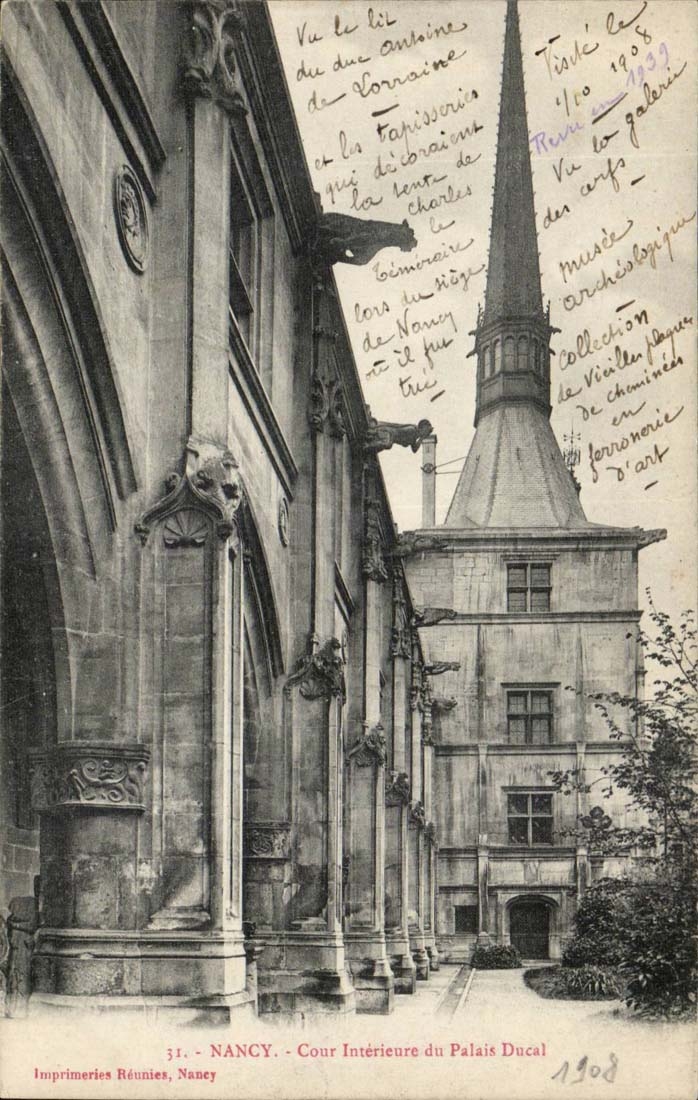 Vu le lit
du duc antoine
de Lorraine
et les tapisseries
qui décoraient
la tente de
Charles
le
Téméraire
lors du siège
de Nancy
où il fut
tué
Visité le
1/10 1908
Revu en 1939
Vu la galerie
des cerfs
musée
archéologique
collection
de vieilles plaques
de cheminées
en
ferronerie
d'art
31. - NANCY. - Cour Intérieure du Palais Ducal
Imprimeries Réunies, Nancy
1908